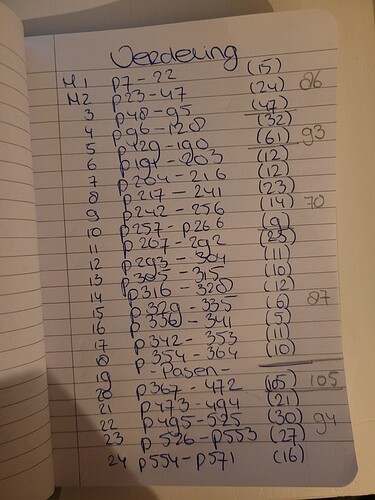 Verdeling
H1 p7-22 (15)
H2 p23-47 (24) 86
3 p48-95 (47)
4 p96-128 (32)
5 p129-190 (61) 93
6 p191-203 (12)
7 p204-216 (12)
8 p217-241 (23)
9 p242-256 (14) 70
10 p257-p266 (9)
11 p267-292 (25)
12 p293-304 (11)
13 p305-315 (10)
14 p316-328 (12)
15 p329-335 (6) 87
16 p336-341 (5)
17 p342-353 (11)
18 p354-364 (10)
19 -Pasen-
20 p367-472 (105) 105
21 p473-494 (21)
22 p495-525 (30) 94
23 p526-p553 (27)
24 p554-p571 (16)